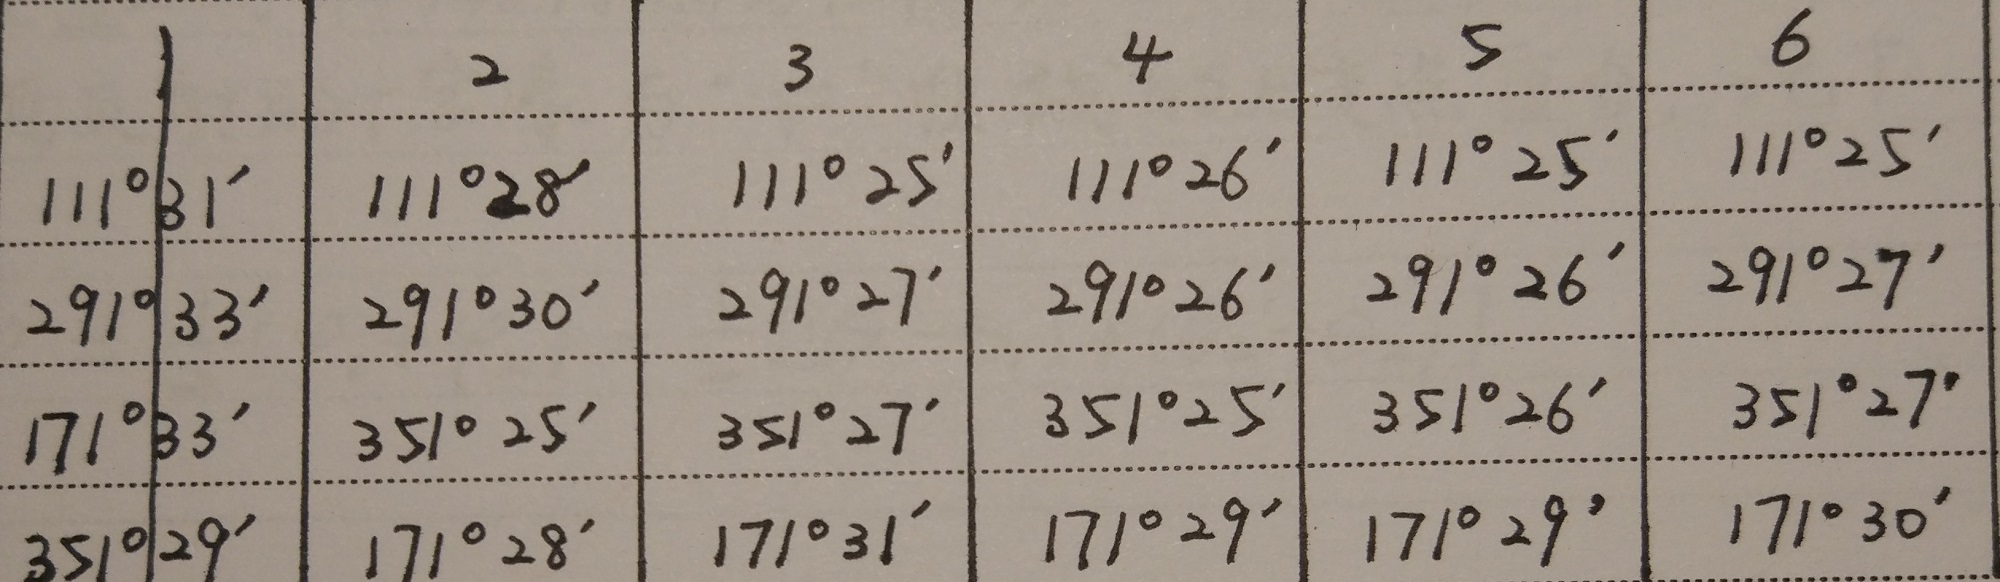 1 2 3 4 5 6
111°31′ 111°28′ 111°25′ 111°26′ 111°25′ 111°25′
291°33′ 291°30′ 291°27′ 291°26′ 291°26′ 291°27′
171°33′ 351°25′ 351°27′ 351°25′ 351°26′ 351°27′
351°29′ 171°28′ 171°31′ 171°29′ 171°29′ 171°30′